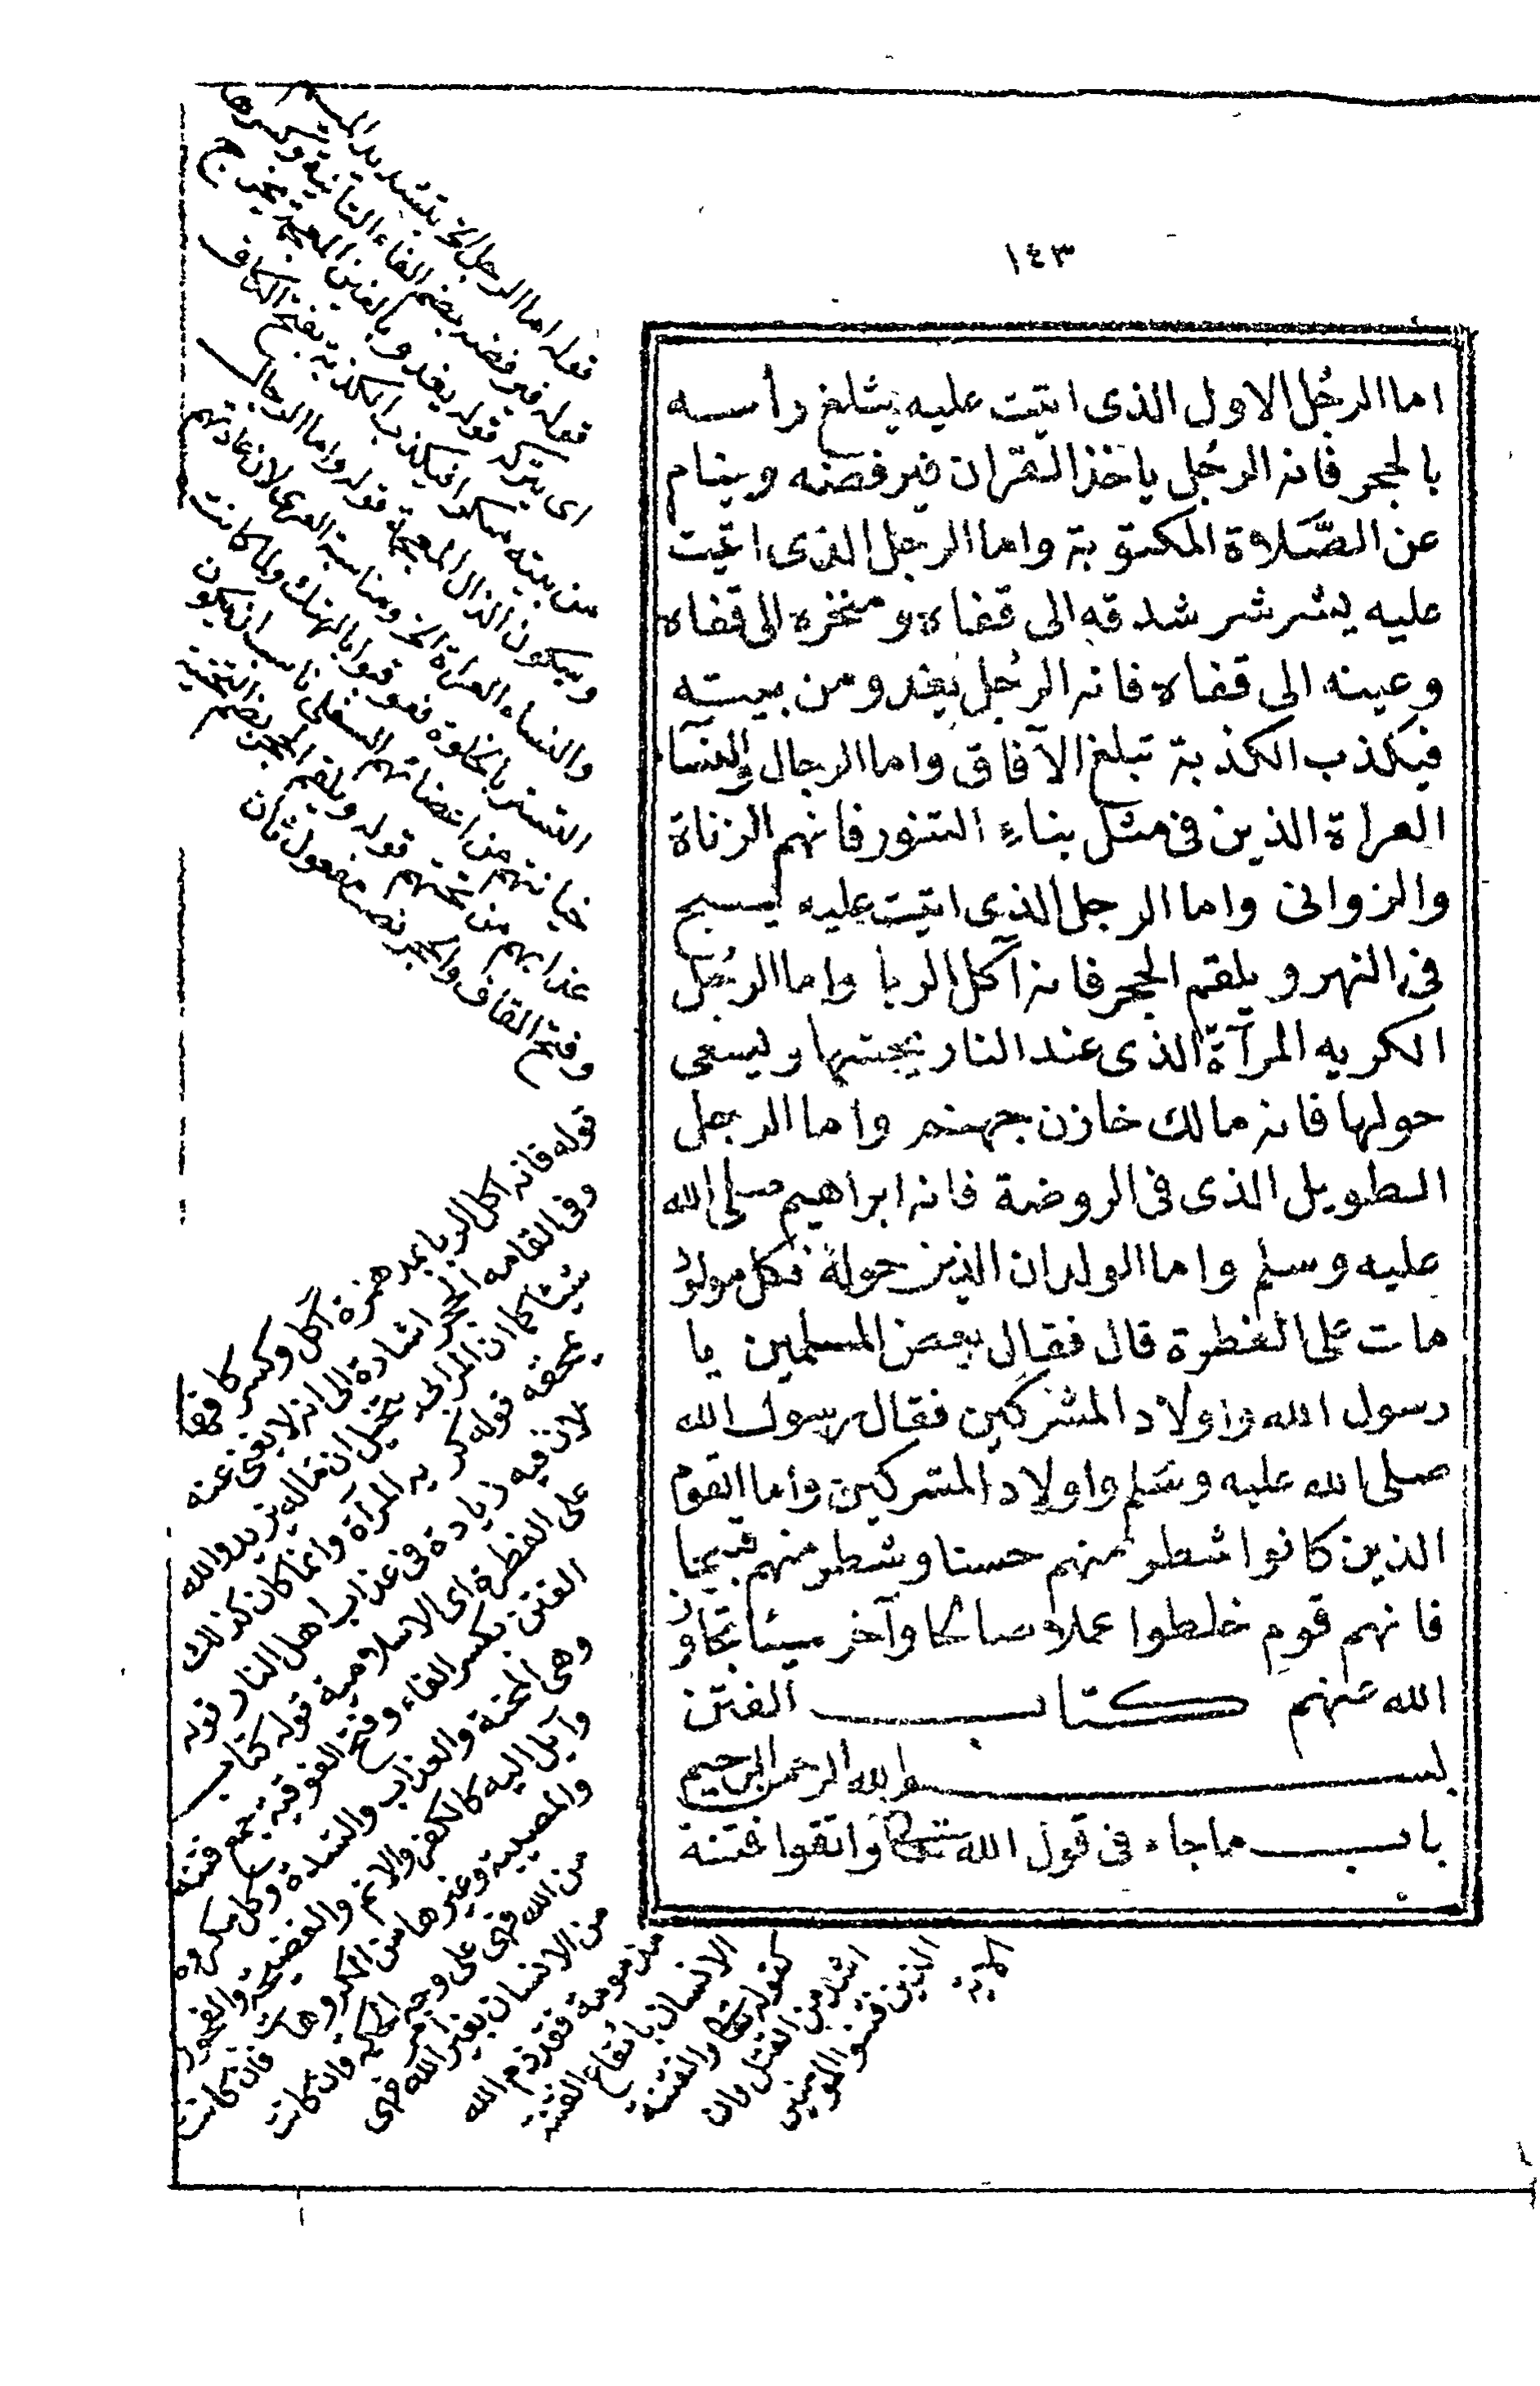 ١٤٣
اما الرجُل الاول الذى اتيت عليه يثلغ رأسه
بالحجر فانه الرجُل ياخذ القران فيرفضه وينام
عن الصَّلاة المكتوبة واما الرجل الذى اتيت
عليه يشرشر شدقه الى قفاه ومنخره الى قفاه
وعينه الى قفاه فانه الرجُل يغدو من بيته
فيكذب الكذبة تبلغ الآفاق واما الرجال والنسآء
العراة الذين فى مثل بناء التنور فانهم الزناة
والزوانى واما الرجل الذى اتيت عليه يسبح
فى النهر ويلقم الحجر فانه آكل الربا واما الرجُل
الكريه المرآة الذى عند النار يحشها ويسعى
حولها فانه مالك خازن جهنم واما الرجل
الطويل الذى فى الروضة فانه ابراهيم صلى الله
عليه وسلم واما الولدان الذين حوله فكل مولود
مات على الفطرة قال فقال بعض المسلمين يا
رسول الله واولاد المشركين فقال رسول الله
صلى الله عليه وسلم واولاد المشركين واما القوم
الذين كانوا شطر منهم حسنا وشطر منهم قبيحا
فانهم قوم خلطوا عملا صالحا وآخر سيئا تجاوز
الله عنهم كتاب الفتن
بسم الله الرحمن الرحيم
باب ما جاء فى قول الله تعالى واتقوا فتنة
قوله اما الرجل الخ بتشديد الميم
قوله فيرفضه بضم الفاء الثانية وكسرها
اى يتركه قوله يغدو بالغين المعجمة يخرج
من بيته مبكرا فيكذب الكذبة بفتح الكاف
وسكون الذال المعجمة قوله واما الرجال
والنساء العراة الخ ومناسبة العرى لان عادتهم
التستر بالخلوة فعوقبوا بالهتك ولما كانت
خيانتهم من اعضائهم السفلى ناسب ان يكون
عذابهم من تحتهم قوله ويلقم الحجر بضم التحتية
وفتح القاف والحجر نصب مفعول ثان
قوله فانه اكل الربا بمد همزة آكل وكسر كافها
وفى القامه الحجر اشارة الى انه لا يغنى عنه
شيئا كما ان المرابى يتخيل ان ماله يزيد والله
يمحقه قوله كريه المرآة وانما كان كذلك
لان فيه زيادة فى عذاب اهل النار قوله
على الفطرة اى الاسلامية قوله كتاب
الفتن بكسر الفاء وفتح الفوقية جمع فتنة
وهى المحنة والعذاب والشدة وكل مكروه
وآيل اليه كالكفر والاثم والفضيحة والفجور
والمصيبة وغيرها من المكروهات فان كانت
من الله فهى على وجه الحكمة وان كانت
من الانسان بغير امر الله فهى
مذمومة فقد ذم الله
الانسان بايقاع الفتنة
كقوله تعالى والفتنة
اشد من القتل وان
الذين فتنوا المومنين
الاية